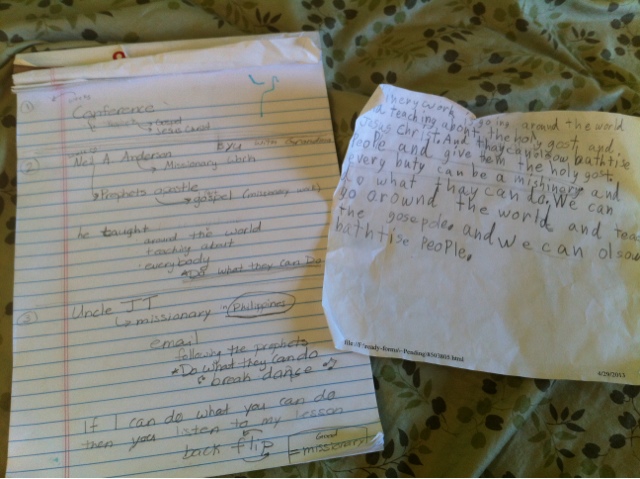 Conference
Good
Jesus Christ
② Neil A. Anderson
Missionary Work
Prophets apostle
gospel (missionary work)
he taught
around the world
teaching about
everybody
*Do what they can Do
③ Uncle JT
missionary Philippines
email
following the prophets
*Do what they can do
break dance
If I can do what you can do
then you listen to my lesson
back flip
Good
= missionary
around the world
a teaching about the holy gost and
Jesus Christ. And thay can olsow bathtise
People and give them the holy gost.
every buty can be a mishinery and
do what thay can do. We can
go arownd the world and teach
the gosepole. and we can olsow
bathtise People.
4/29/2013